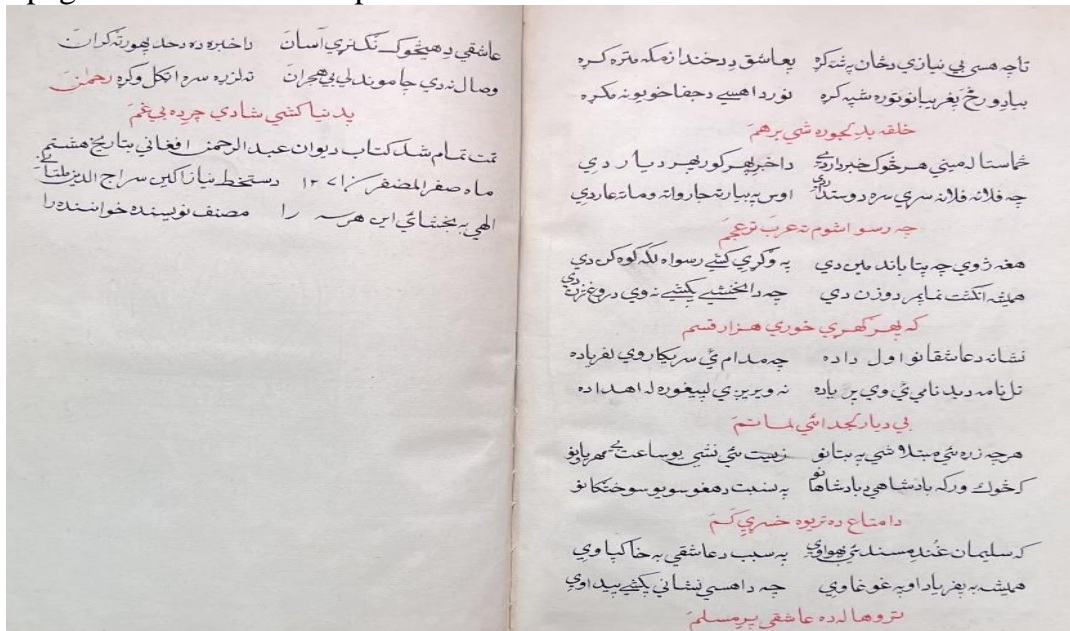 تاچه هسی بي نيازي دځان پشه کړه بعاشق د درخندا زمکه متره کړه
بيادو رخ پغربيانو توره شپه کړه نور داهسے دجفا خويونه مکړه
خلقه بد لجوره شي برهم
ځماستا له ميني هر څوک خبر دار دي داخبر پهر کور پهر ديار دي
چه فلانه فلانه سړي سره دوستدار دي اوس په بيارته جار واته ومانه عار دي
چه رسوا شوم نه عرب نه عجم
هغه ژوي چه پتا باند مين دي په وګړي کښے رسواه لکه کوه کن دي
هميشه انکشت نما په مرد و زن دي چه دا پخښے پکښے نه وي دروغژن دي
که پهر ګهړي خوري هزار قسم
نشانه دعاشقانو اول داده چه مدام ئي سر پکار وي لفرياده
تل نامه دبد نامي ئي وي پر ياده نه ويريږي لپيغوره له اهداده
بي ديار لجدائي لماتم
هرچه زړه ئي مبتلا شي په بتانو زييت ئي نشي يو ساعت بے مهرويانو
که څوک ورکه بادشاهي د بادشاهانو په نسبت دهغو سويو سوختکانو
دا متاع ده تريوه خسړي کم
که سليمان غندے مسند ئي پهوا وي په سبب دعاشقي به خاکپا وي
هميشه به پفرياد او په غوغا وي چه داهسي نشاني پکښے پيدا وي
تر وها له ده عاشقي پر مسلم
عاشقي د هيڅوک نګنړي آسان داخبره ده دحد پهورته کران
وصال نه دي چا موندلي بي هجران ته لزړه سره اټکل وکړه رحمٰن
پدنيا کښي شادي چرده بي غم
تمت تمام شد کتاب ديوان عبدالرحمن افغاني بتاريخ هشتم
ماه صفر المضفر ١٢٧١ دستخط نيازاکين سراج الدين ملتاني
الهي به بخشائي اين هر سه را مصنف نويسنده خواننده را